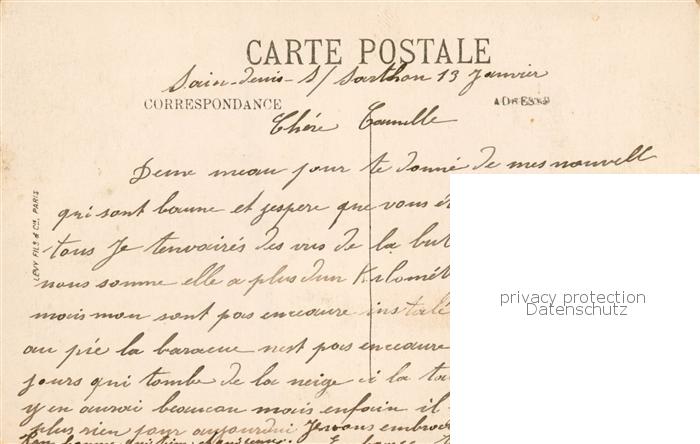 CARTE POSTALE
Sain-denis-S/ Sarthon 13 Janvier
CORRESPONDANCE
ADRESSE
Chére Camille
Deux meau pour te donné de mes nouvell
qui sont baune et jespere que vous ét
tous Je tenvairés des vus de la but
nous somme elle a plus dun Kilomét
mais mon sont pas enceaure instalé
au pié la baracue nest pas enceaure
jours qui tombe de la neige
y en aurai beaucau mais enfain il
plus rien pour aujourdui Je vous embrac
LEVY FILS & Cie. PARIS
privacy protection
Datenschutz